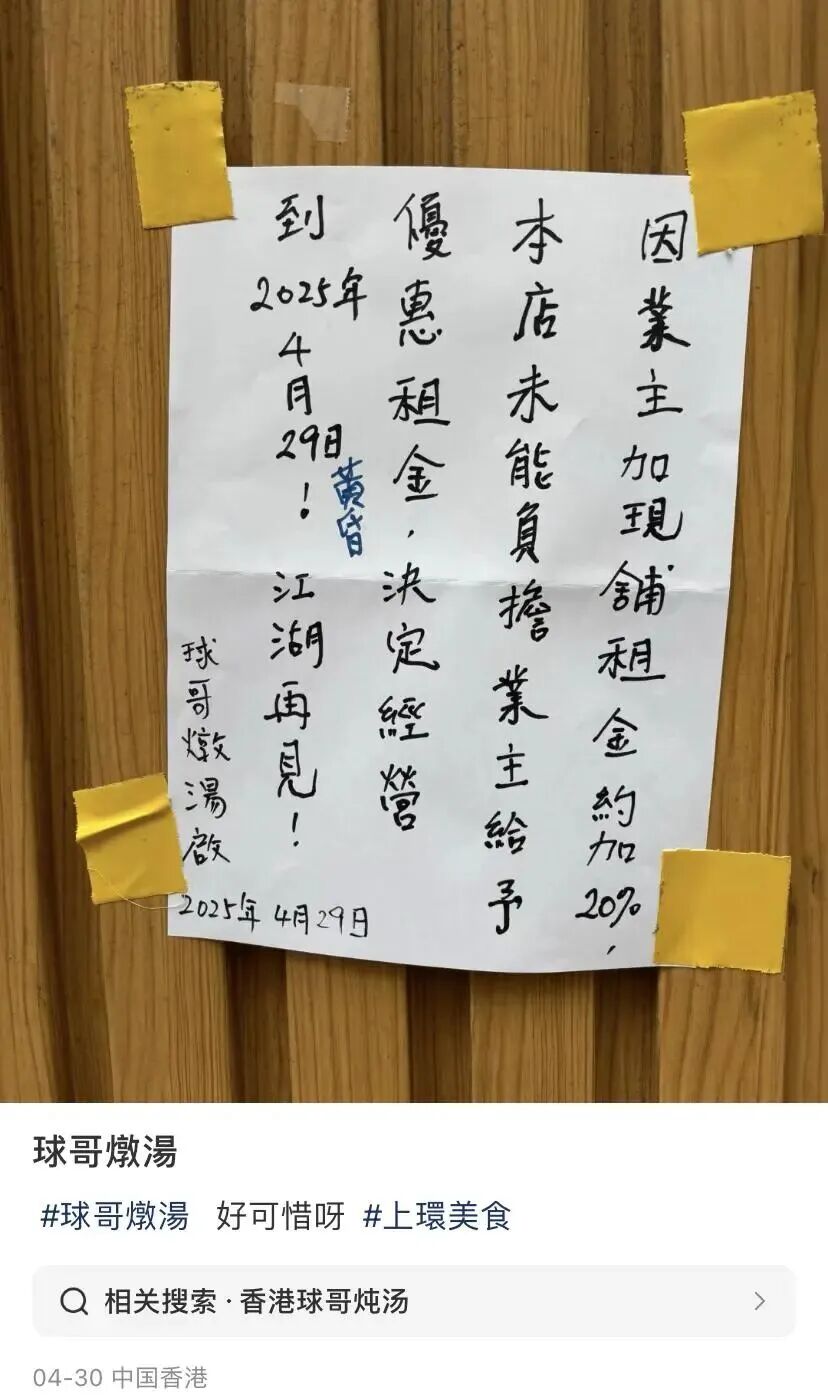 因業主加現舖租金約加20%，
本店未能負擔業主給予
優惠租金，決定經營
到2025年4月29日黃昏！江湖再見！
球哥燉湯啟
2025年4月29日
球哥燉湯
#球哥燉湯 好可惜呀 #上環美食
相关搜索·香港球哥炖汤
04-30 中国香港